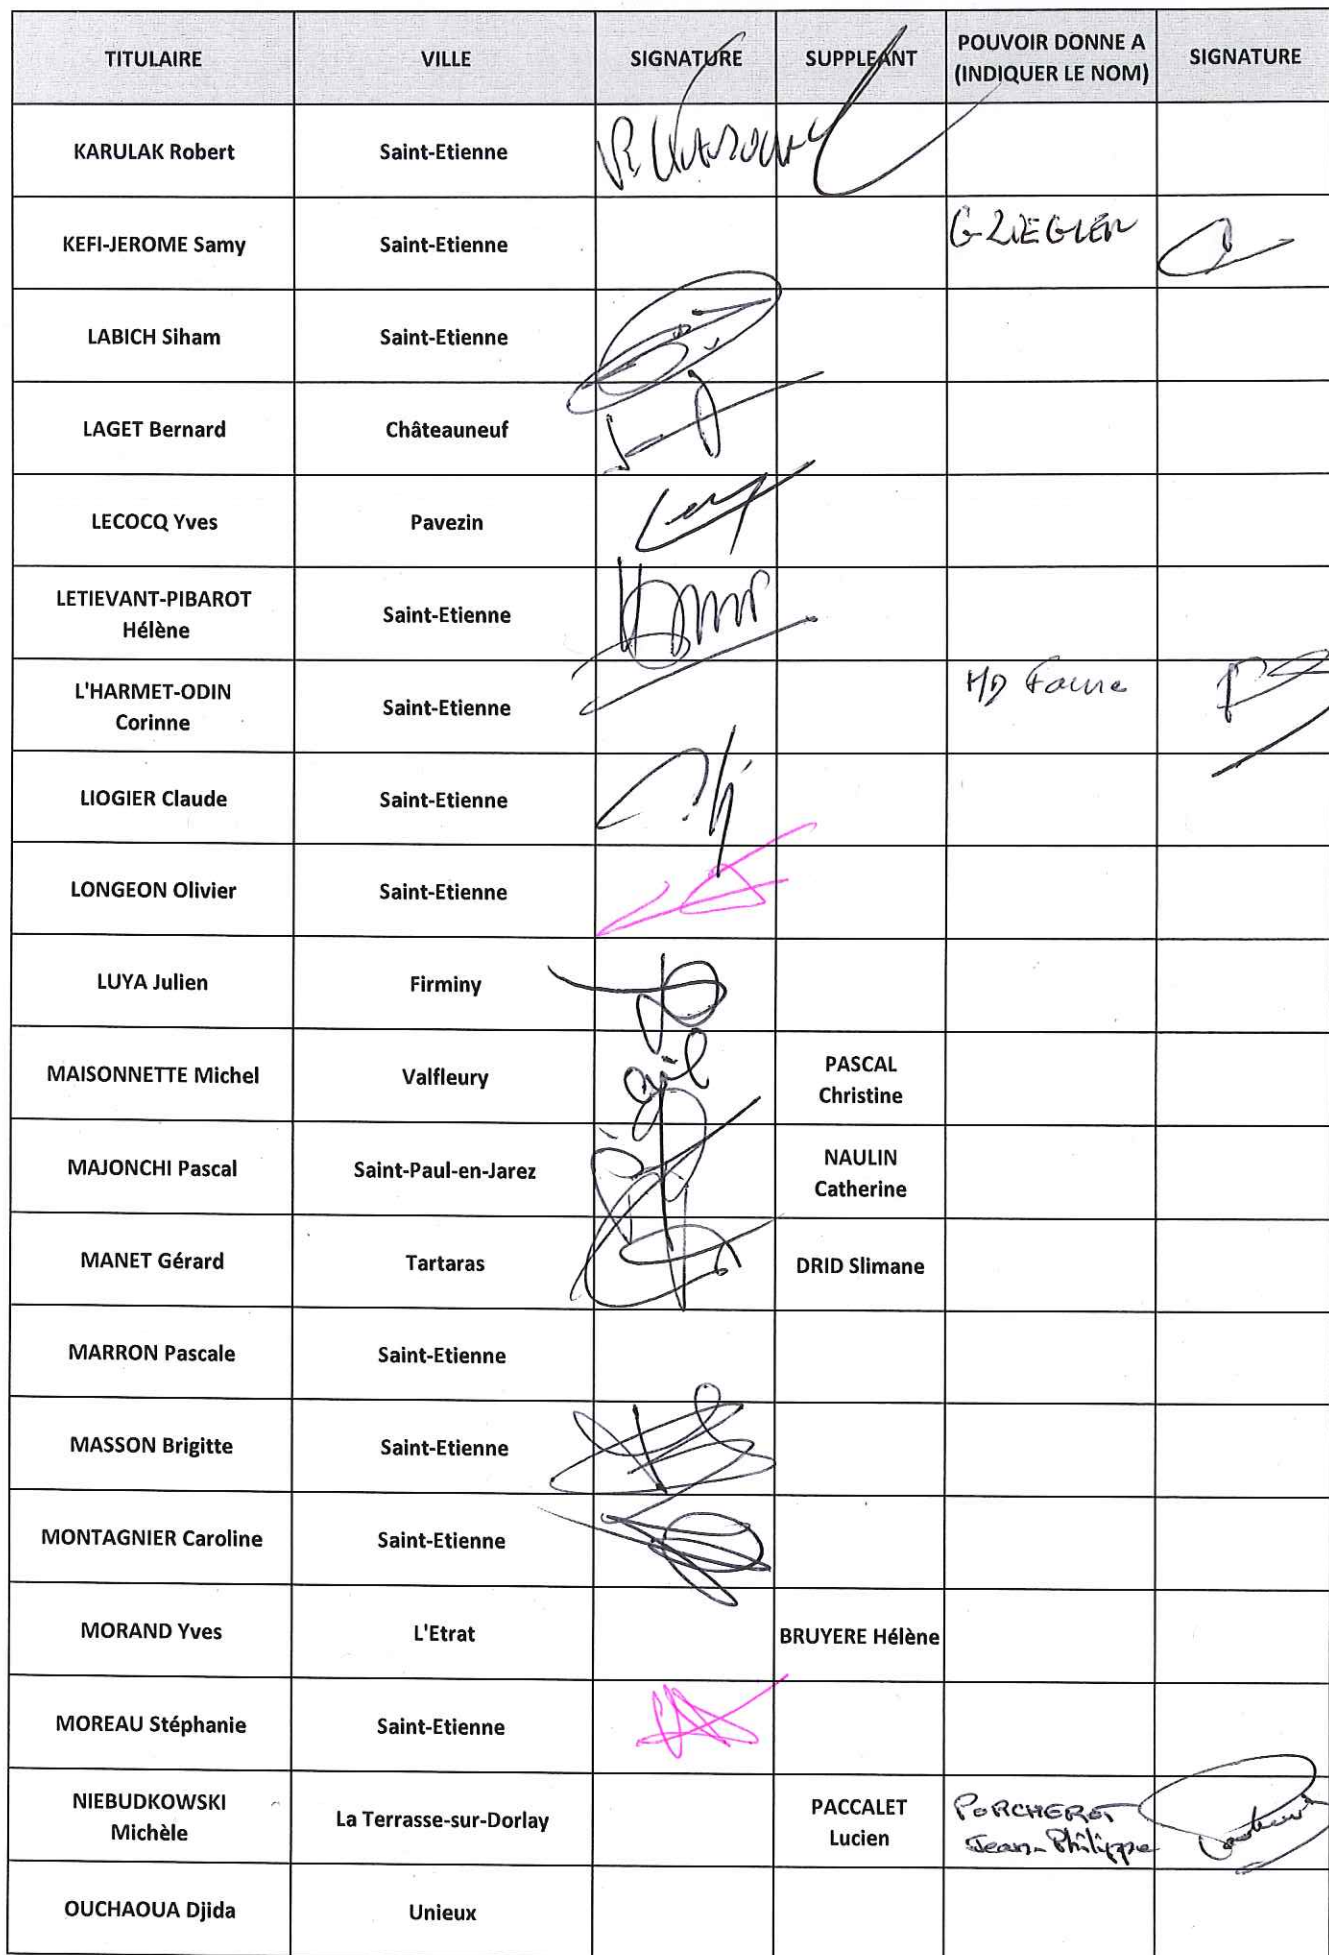 TITULAIRE
VILLE
SIGNATURE
SUPPLEANT
POUVOIR DONNE A
(INDIQUER LE NOM)
SIGNATURE
KARULAK Robert
Saint-Etienne
KEFI-JEROME Samy
Saint-Etienne
G-ZIEGLER
LABICH Siham
Saint-Etienne
LAGET Bernard
Châteauneuf
LECOCQ Yves
Pavezin
LETIEVANT-PIBAROT
Hélène
Saint-Etienne
L'HARMET-ODIN
Corinne
Saint-Etienne
Faure
LIOGIER Claude
Saint-Etienne
LONGEON Olivier
Saint-Etienne
LUYA Julien
Firminy
MAISONNETTE Michel
Valfleury
PASCAL
Christine
MAJONCHI Pascal
Saint-Paul-en-Jarez
NAULIN
Catherine
MANET Gérard
Tartaras
DRID Slimane
MARRON Pascale
Saint-Etienne
MASSON Brigitte
Saint-Etienne
MONTAGNIER Caroline
Saint-Etienne
MORAND Yves
L'Etrat
BRUYERE Hélène
MOREAU Stéphanie
Saint-Etienne
NIEBUDKOWSKI
Michèle
La Terrasse-sur-Dorlay
PACCALET
Lucien
PORCHEROT
Jean-Philippe
OUCHAOUA Djida
Unieux